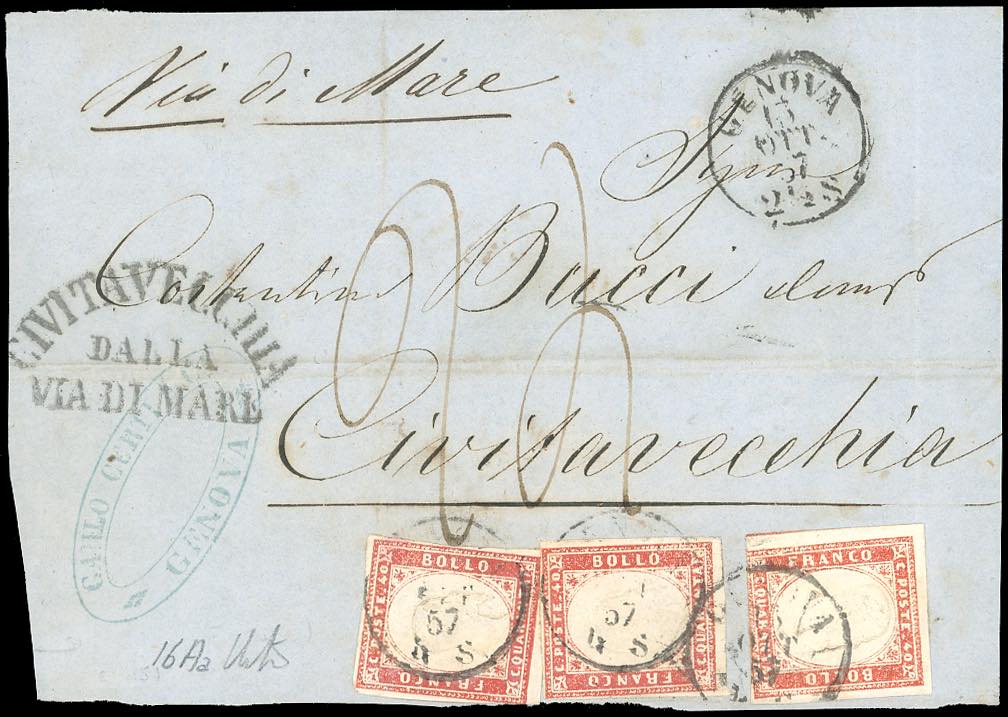 Via di Mare
GENOVA
13
OTT.
57
2½ S
Costantino Bucci
CIVITAVECCHIA
DALLA
VIA DI MARE
CAMLO
GENOVA
Civitavecchia
BOLLO
C. POSTE. 40
C. QUARANTA
FRANCO
57
S
BOLLO
C. POSTE. 40
C. QUARANTA
FRANCO
57
S
FRANCO
C. POSTE. 40
C. QUARANTA
BOLLO
57
16Aa